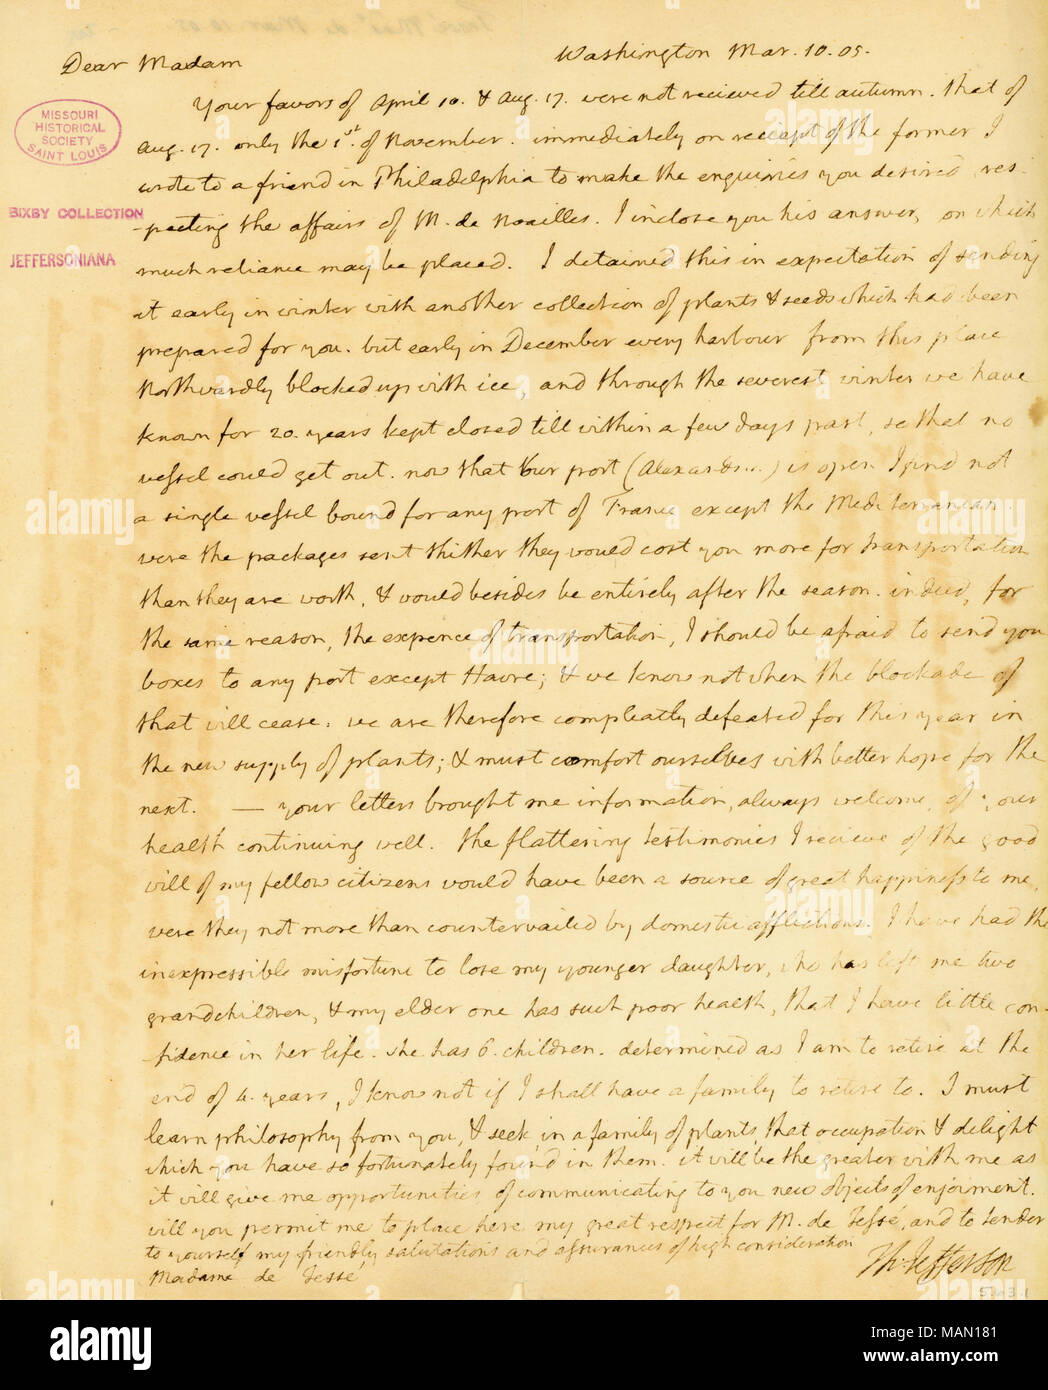 Dear Madam
Washington Mar. 10. 05.
Your favors of April 10. & Aug. 17. were not recieved till autumn. that of
Aug. 17. only the 1st. of November. immediately on reciept of the former I
wrote to a friend in Philadelphia to make the enquiries you desired res-
-pecting the affairs of M. de Noailles. I inclose you his answer, on which
much reliance may be placed. I detained this in expectation of sending
it early in winter with another collection of plants & seeds which had been
prepared for you. but early in December every harbour from this place
Northwardly blocked up with ice, and through the severest winter we have
known for 20. years kept closed till within a few days past, so that no
vessel could get out. now that our port (Alexandria) is open I find not
a single vessel bound for any port of France except the Mediterranean.
were the packages sent thither they would cost you more for transportation
than they are worth, & would besides be entirely after the season. indeed, for
the same reason, the expence of transportation, I should be afraid to send you
boxes to any port except Havre; & we know not when the blockade of
that will cease. we are therefore compleatly defeated for this year in
the new supply of plants; & must comfort ourselves with better hope for the
next. — your letters brought me information, always welcome, of your
health continuing well. the flattering testimonies I recieve of the good
will of my fellow citizens would have been a source of great happiness to me,
were they not more than countervailed by domestic afflictions. I have had the
inexpressible misfortune to lose my younger daughter, who has left me two
grandchildren, & my elder one has such poor health, that I have little con-
-fidence in her life. she has 6. children. determined as I am to retire at the
end of 4. years, I know not if I shall have a family to retire to. I must
learn philosophy from you, & seek in a family of plants, that occupation & delight
which you have so fortunately found in them. it will be the greater with me as
it will give me opportunities of communicating to you new objects of enjoiment.
will you permit me to place here my great respect for M. de Tessé, and to tender
to yourself my friendly salutations and assurances of high consideration
Th: Jefferson
Madame de Tessé
MISSOURI
HISTORICAL
SOCIETY
SAINT LOUIS
BIXBY COLLECTION
JEFFERSONIANA
alamy
Image ID: MAN181
www.alamy.com